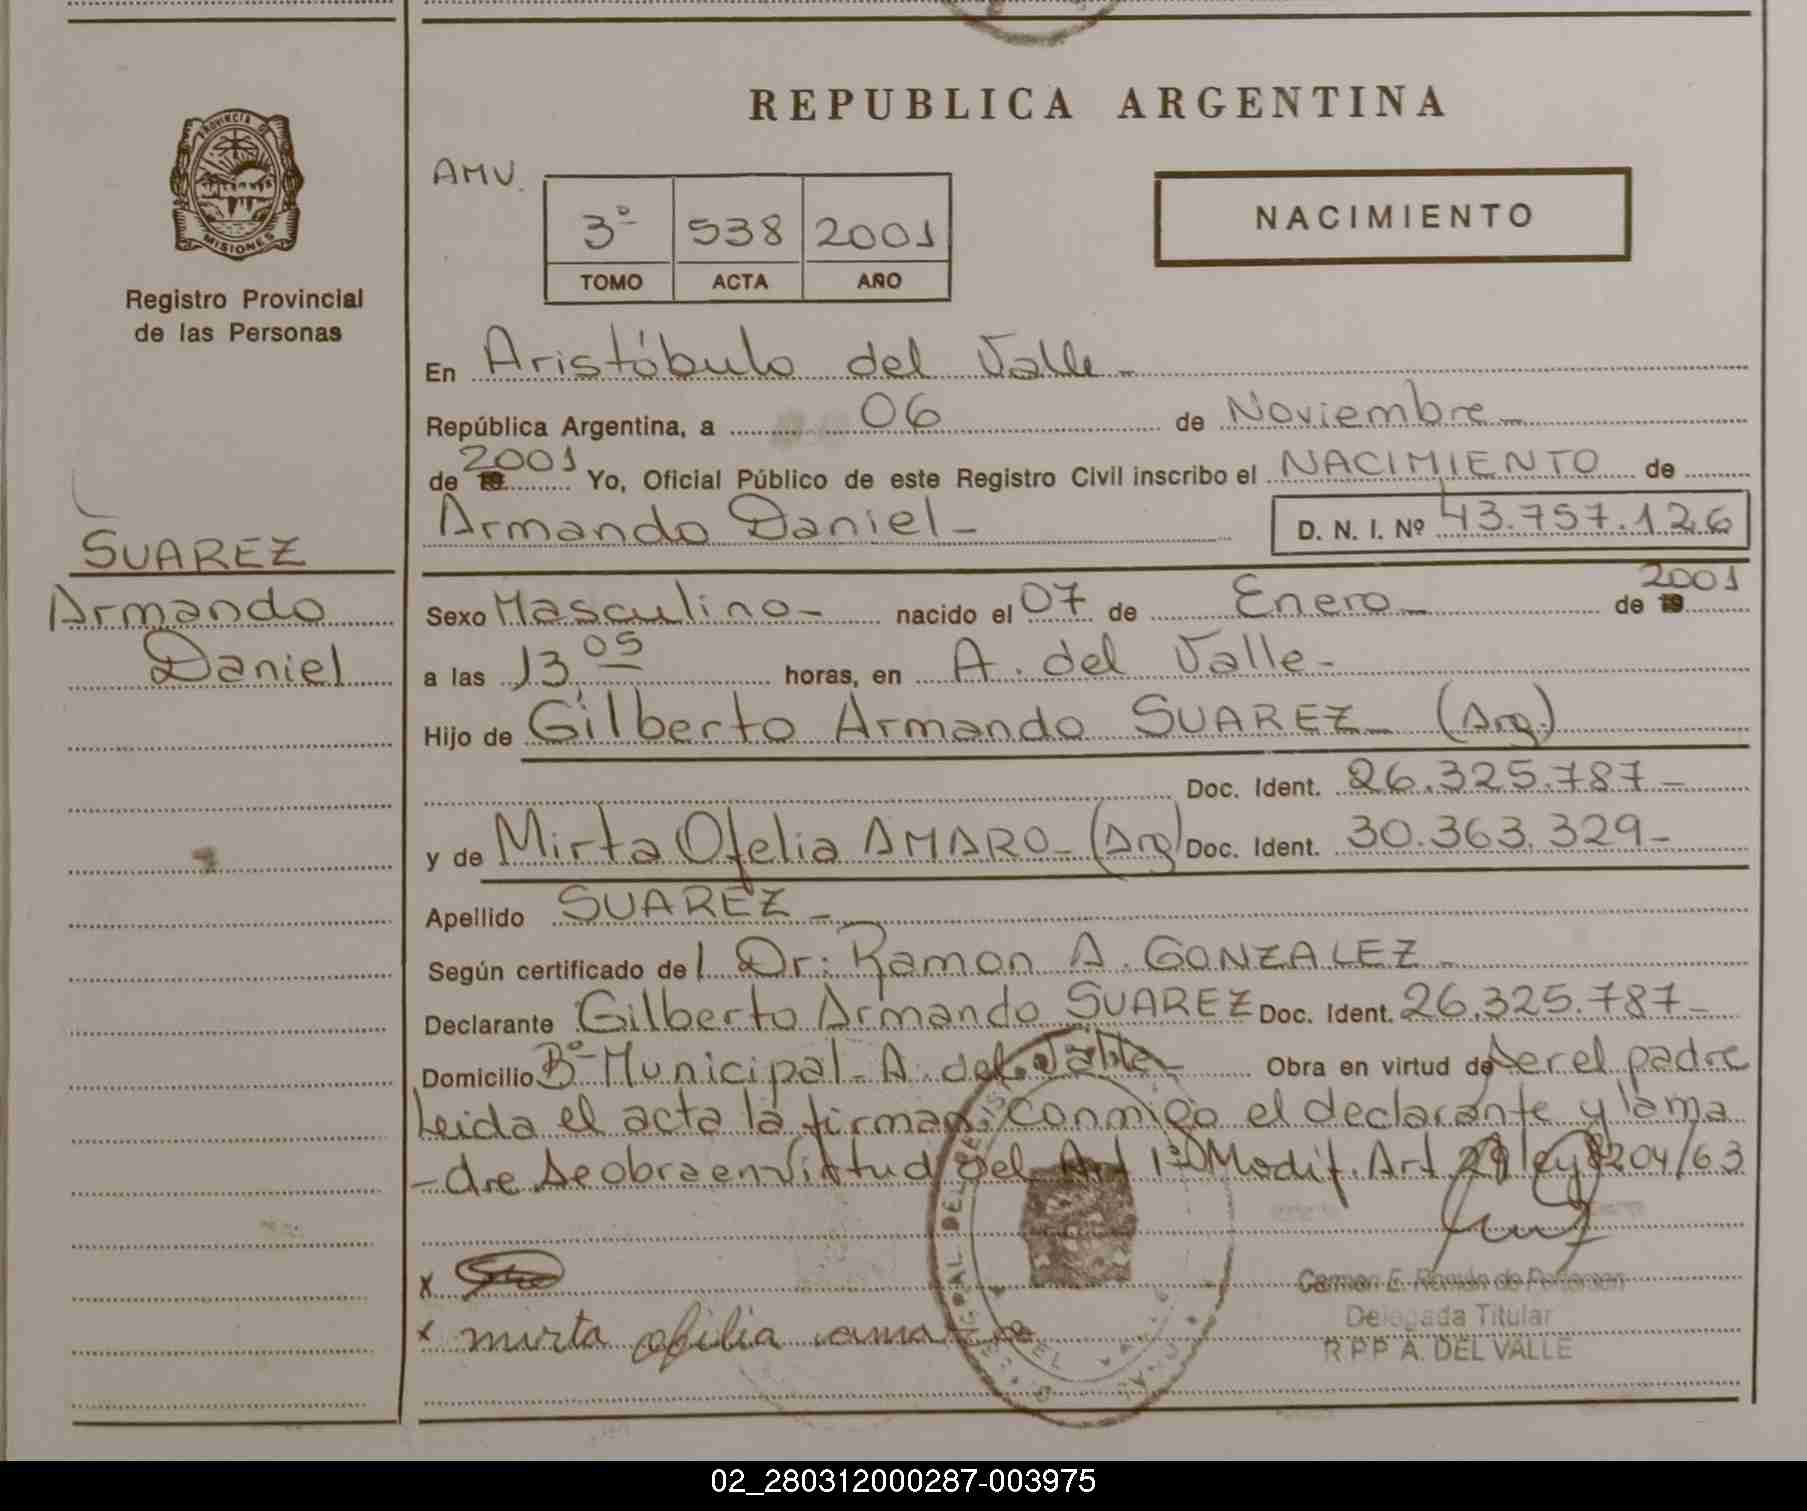 REPUBLICA ARGENTINA
PROVINCIA D
MISIONES
Registro Provincial
de las Personas
SUAREZ
Armando
Daniel
AMV.
3º 538 2001
TOMO ACTA AÑO
NACIMIENTO
En Aristóbulo del Valle -
República Argentina, a 06 de Noviembre -
de 19 2001 Yo, Oficial Público de este Registro Civil inscribo el NACIMIENTO de
Armando Daniel - D. N. I. Nº 43.757.126
Sexo Masculino - nacido el 07 de Enero - de 19 2001
a las 13 05 horas, en A. del Valle -
Hijo de Gilberto Armando SUAREZ - (Arg.)
Doc. Ident. 26.325.787 -
y de Mirta Ofelia AMARO - (Arg) Doc. Ident. 30.363.329 -
Apellido SUAREZ -
Según certificado del Dr: Ramon A. GONZALEZ -
Declarante Gilberto Armando SUAREZ Doc. Ident. 26.325.787 -
Domicilio Bº Municipal - A. del Valle - Obra en virtud de ser el padre
Leida el acta la firman conmigo el declarante y la ma
-dre se obra en virtud del Art 1º Modif. Art 29 ley 8204/63
x
x mirta ofilia
Carmen E. Román de
Delegada Titular
R.P.P A. DEL VALLE
02_280312000287-003975